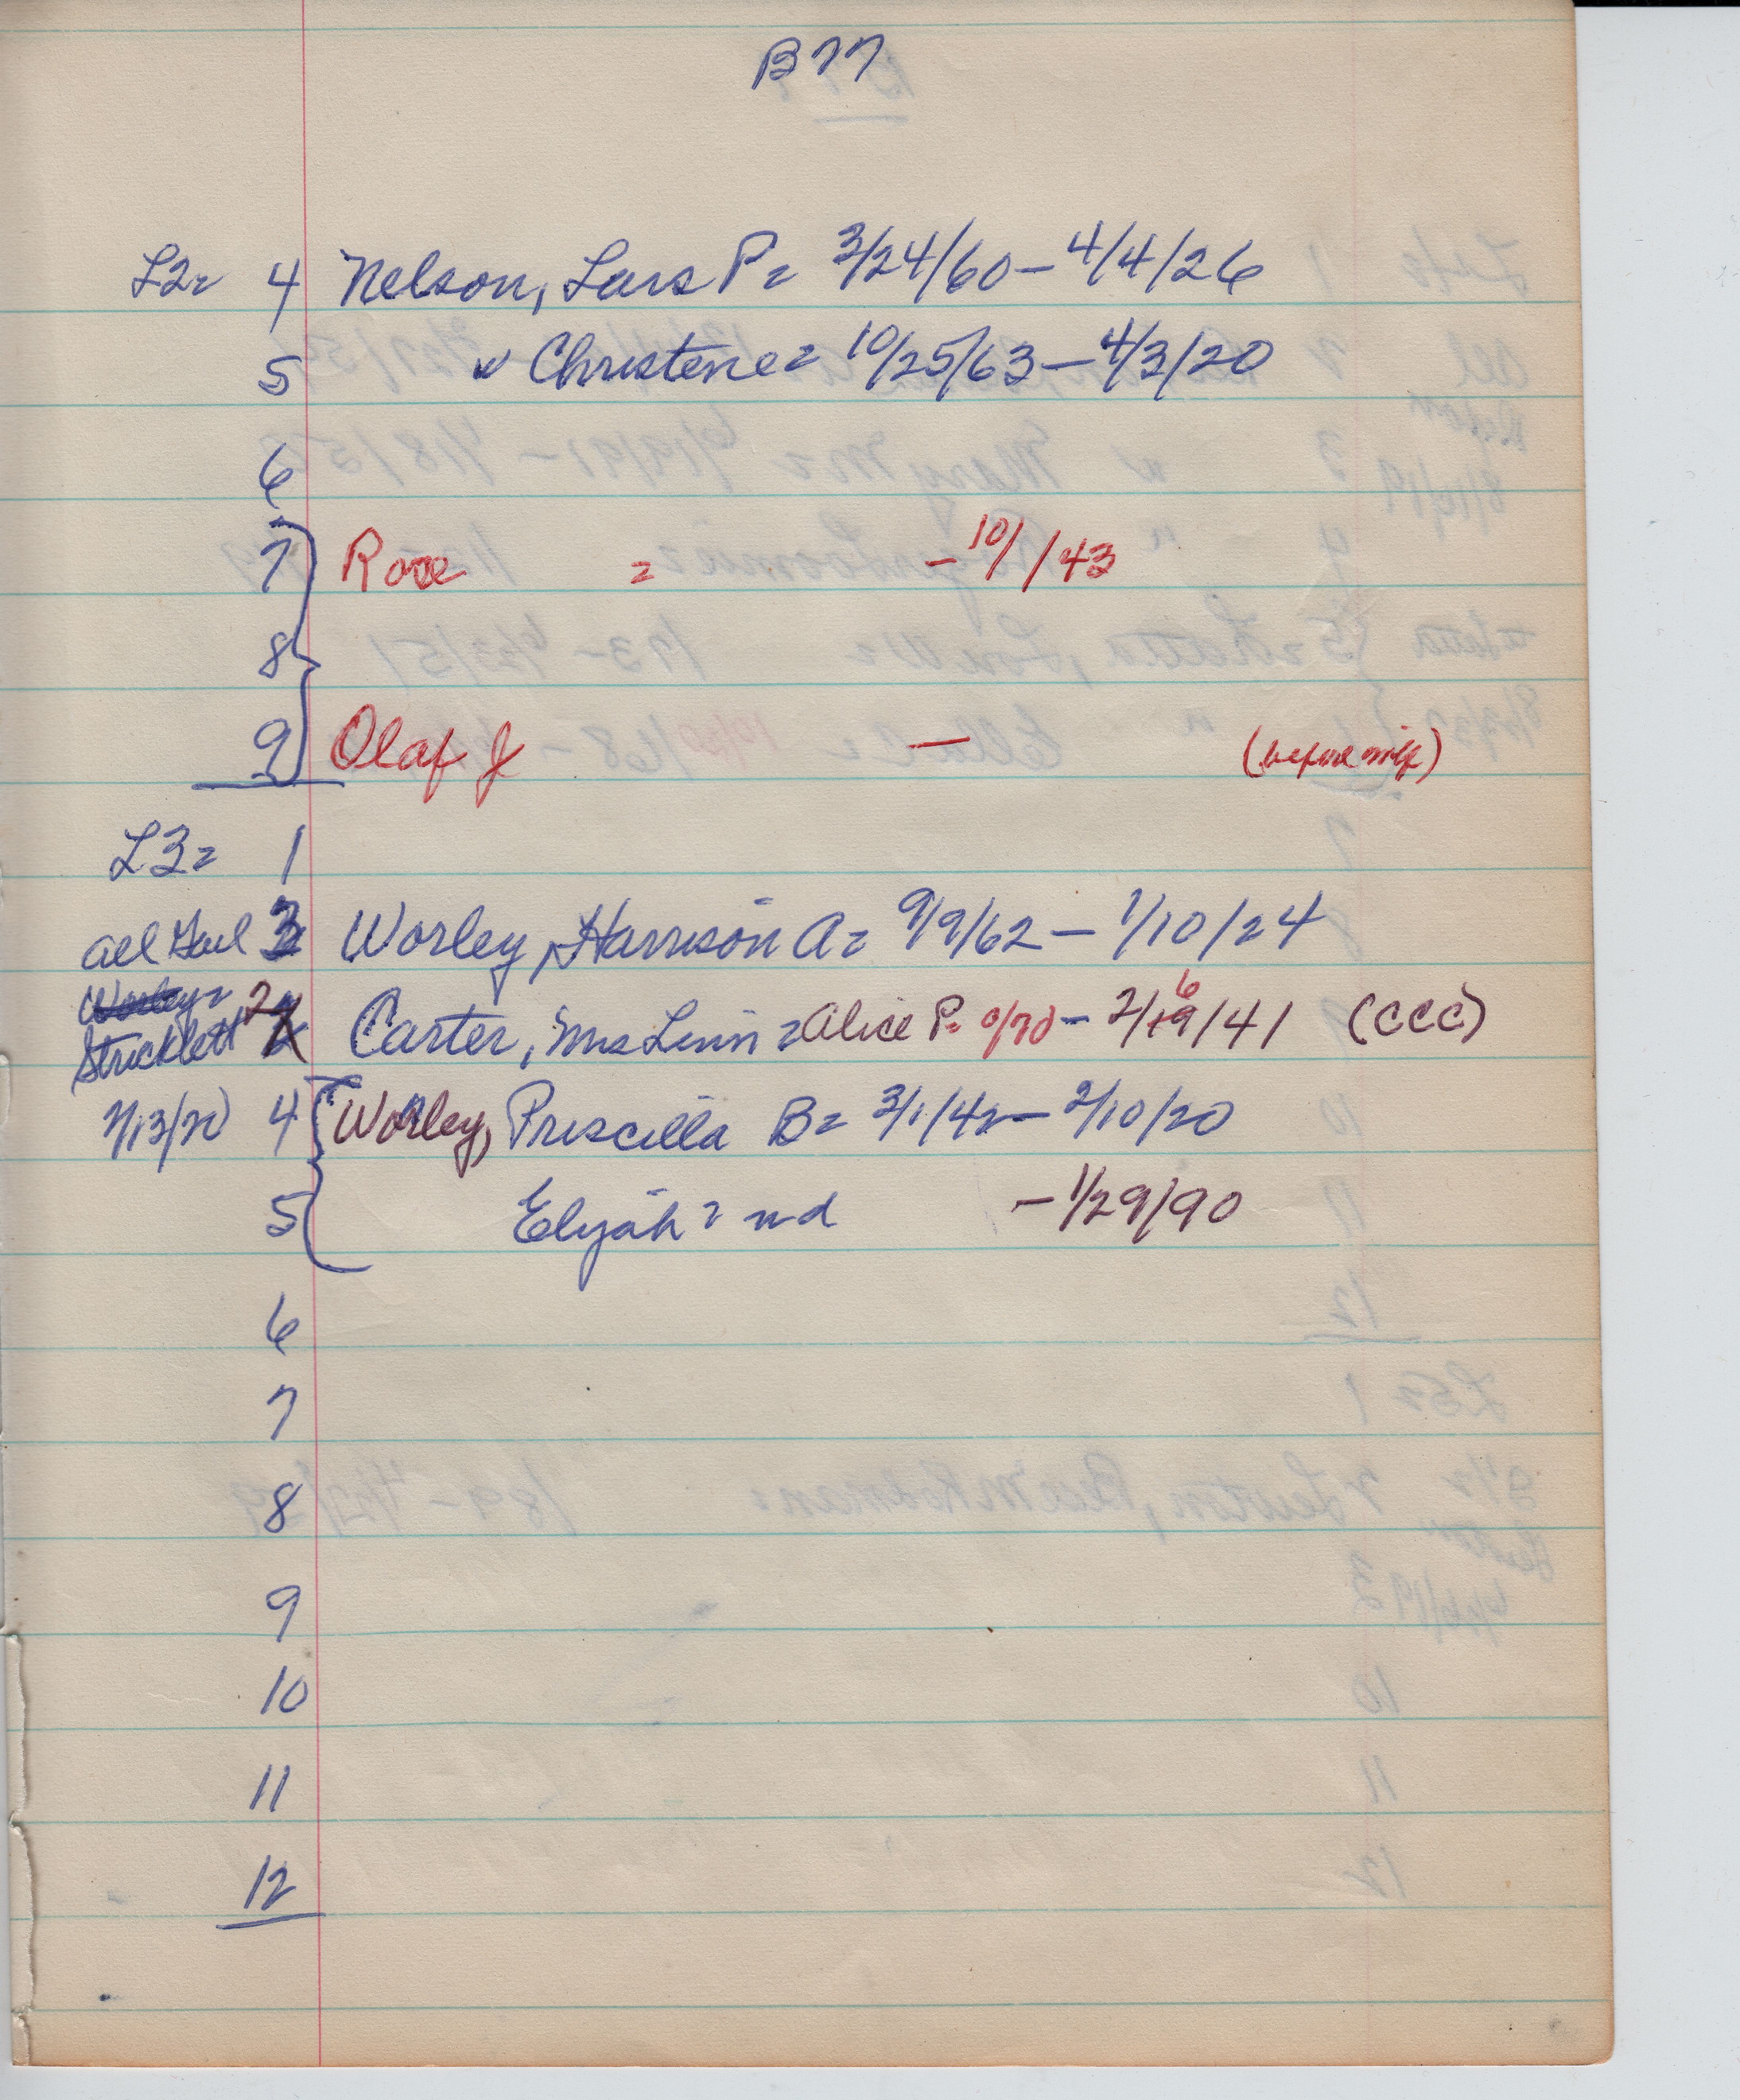 B77
L2= 4 Nelson, Lars P= 3/24/60 - 4/4/26
5 " Christene= 10/25/63 - 4/3/20
6
7 Rose = - 10/ /43
8
9 Olaf J — (before mil)
L3= 1
all Gail 3 Worley, Harrison A= 9/9/62 - 1/10/24
Worley= 2 Carter, Mrs Linn = Alice P= 0/70 - 2/19/41 (CCC)
6
Stricklett
2/13/20 4 Worley, Priscilla B= 3/1/42 - 2/10/20
5 Elijah = nd - 1/29/90
6
7
8
9
10
11
12